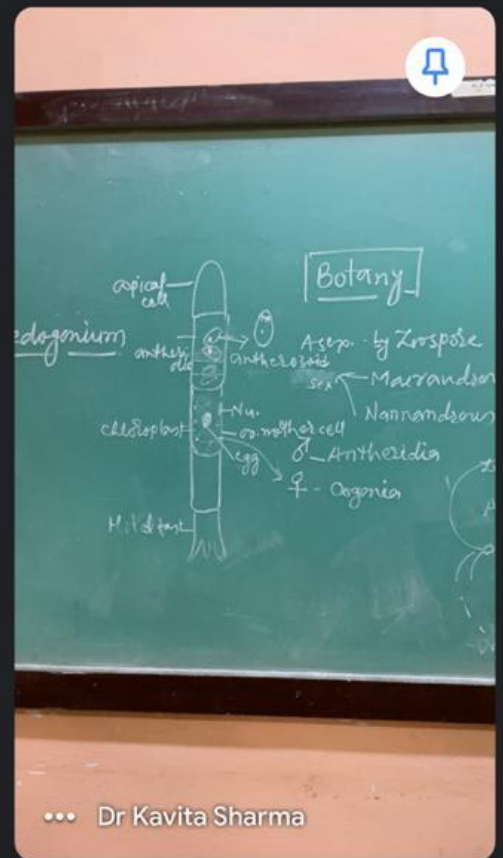 Botany
apical
cell
edogonium
antheri
dia
antherozoid
Asex. - by Zoospore
Sex
Macrandrou
Nannandrous
Nu.
chloroplast
oo. mother cell
egg
♂ - Antheridia
♀ - Oogonia
Hold fast
••• Dr Kavita Sharma